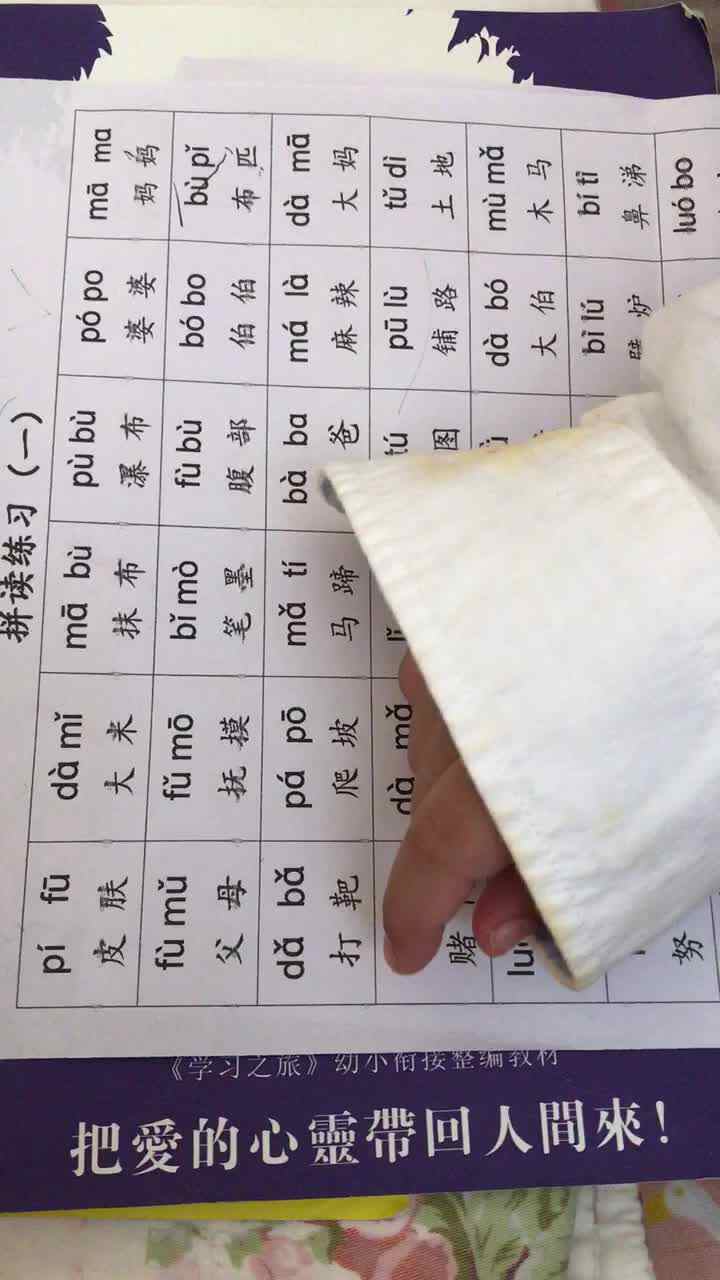 拼读练习（一）
pí fū dà mǐ mā bù pù bù pó po mā ma
皮肤 大米 抹布 瀑布 婆婆 妈妈
fù mǔ fǔ mō bǐ mò fù bù bó bo bù pǐ
父母 抚摸 笔墨 腹部 伯伯 布匹
dǎ bǎ pá pō mǎ tí bà ba má là dà mā
打靶 爬坡 马蹄 爸 麻辣 大妈
dà mǎ tú pū lù tǔ dì
赌 图 铺路 土地
dà bó mù mǎ
大伯 木马
bì lú bí tì
努 炉 鼻涕
luó bo
《学习之旅》幼小衔接整编教材
把愛的心靈帶回人間來！